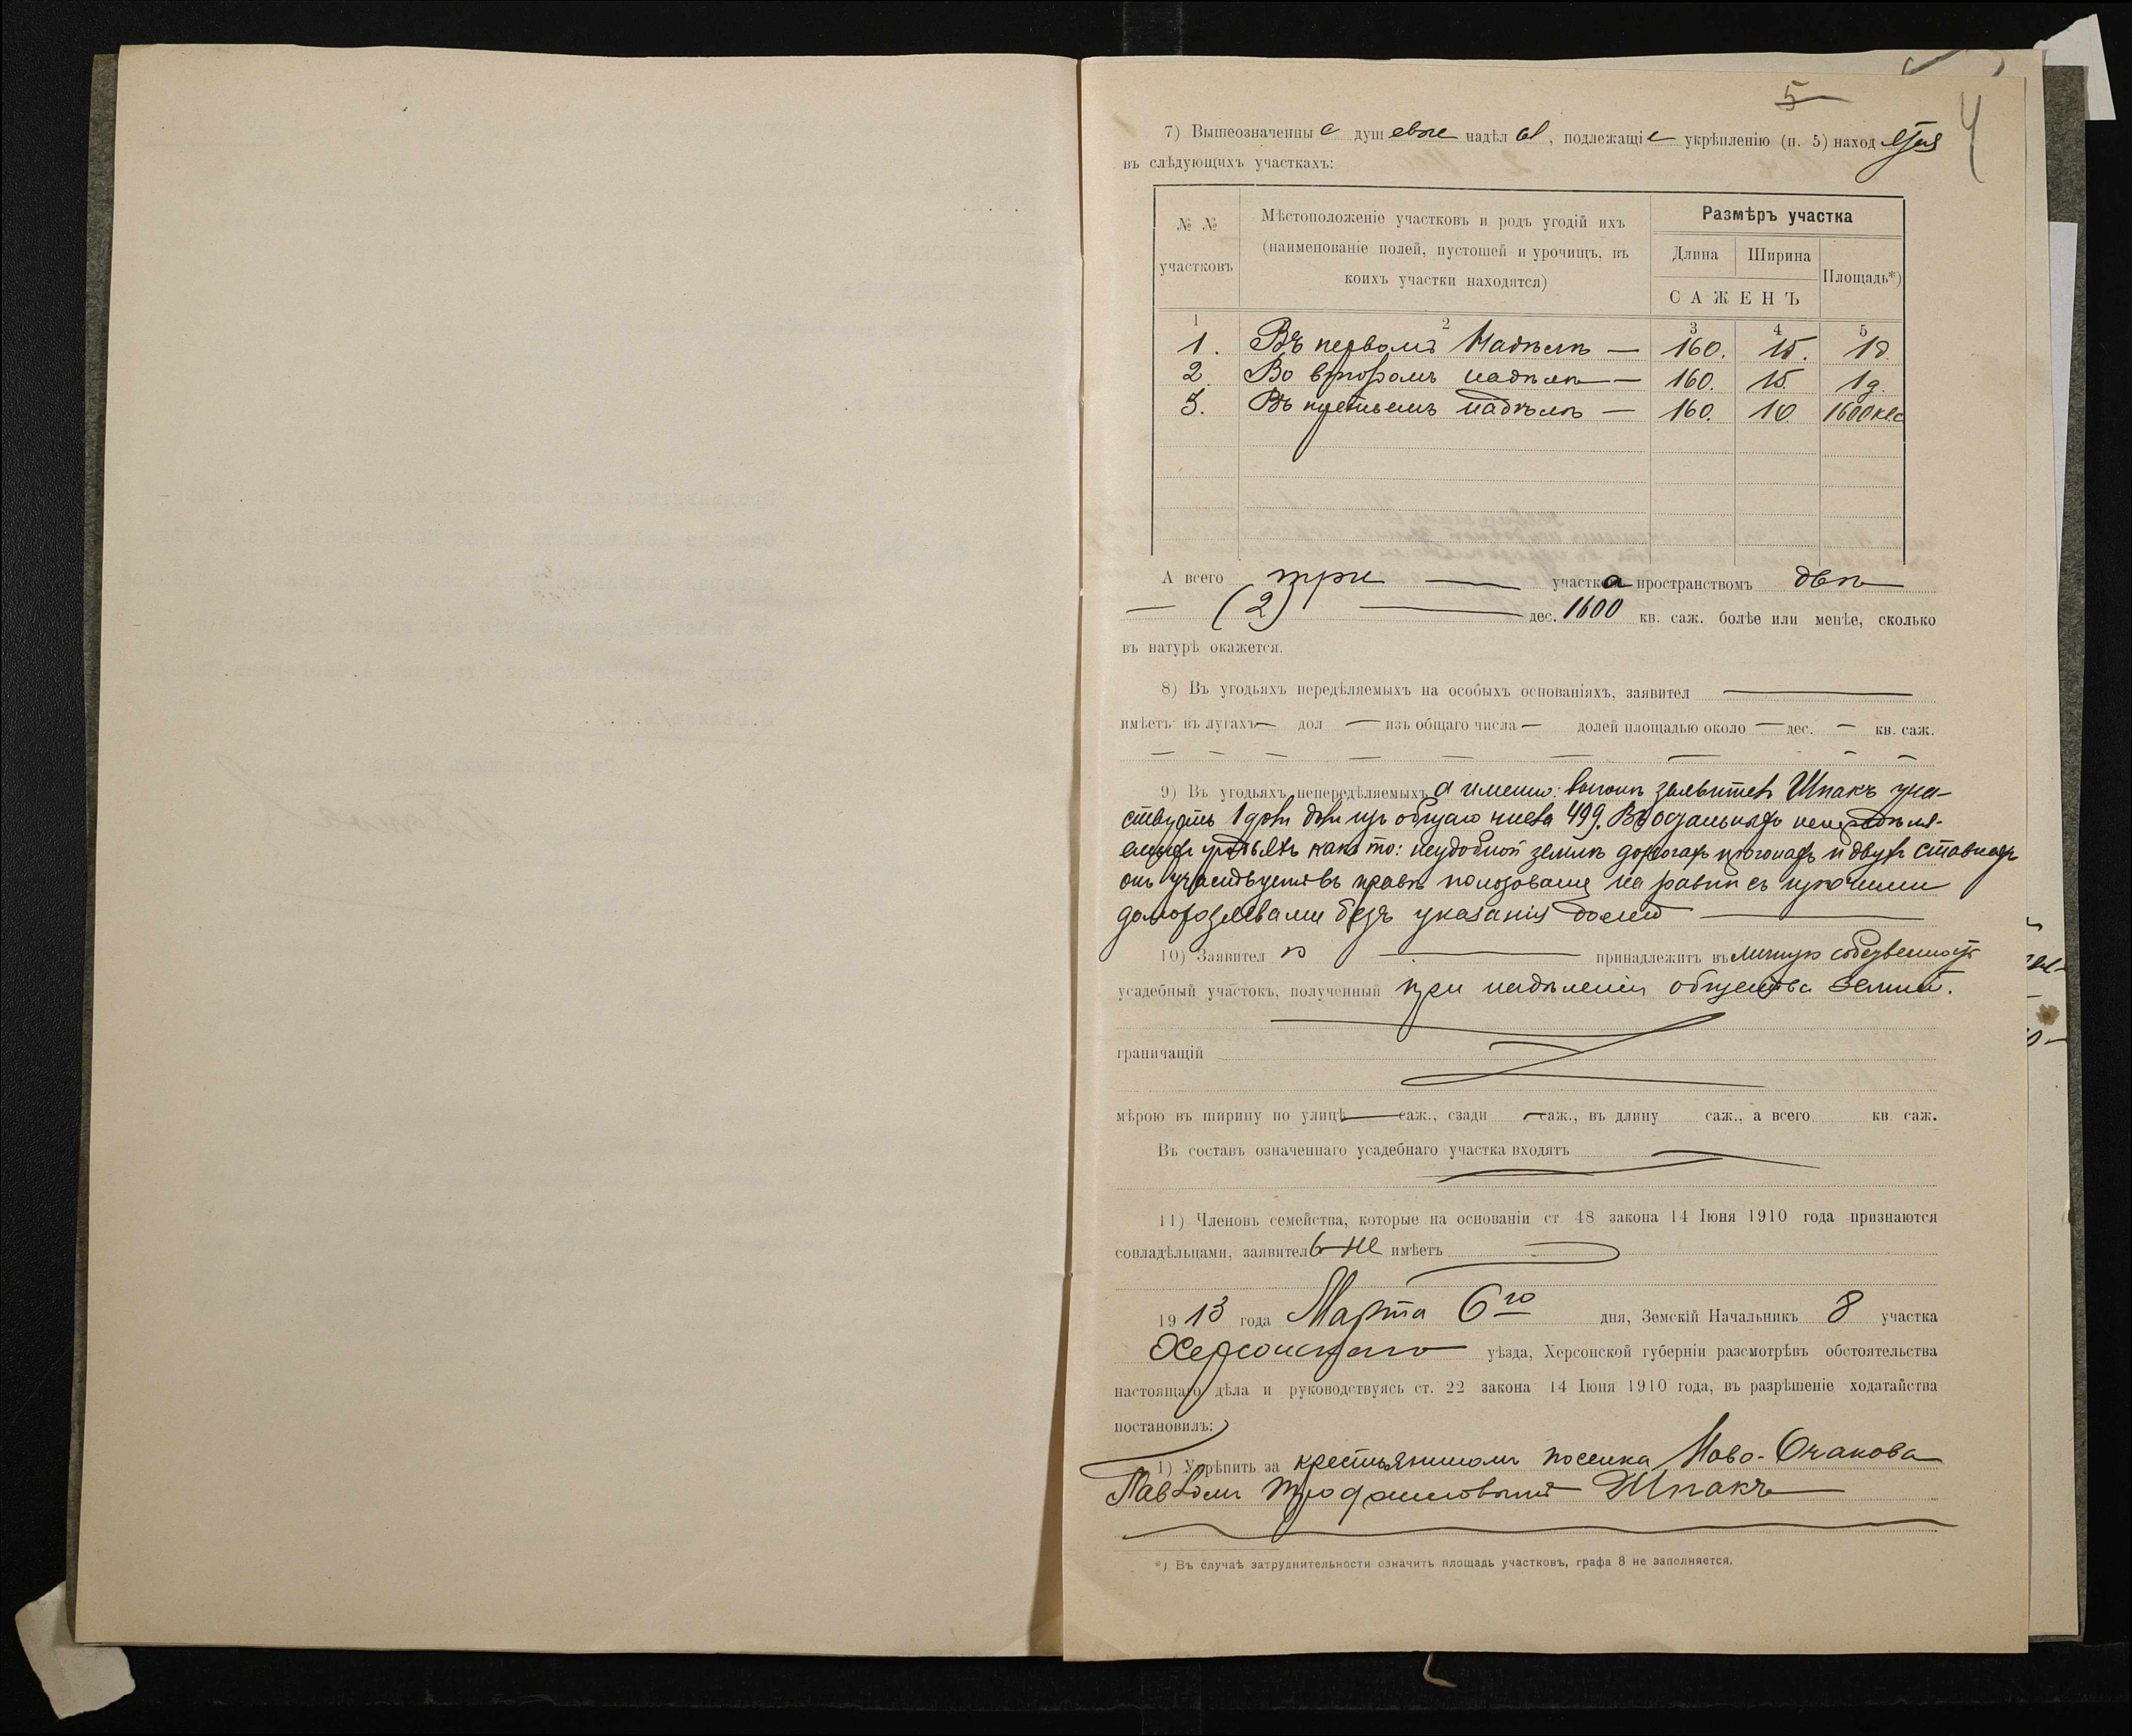 5
4
7) Вышеозначенные душевые надѣлы, подлежащіе укрѣпленію (п. 5) находятся
въ слѣдующихъ участкахъ:
№ № участковъ
Мѣстоположеніе участковъ и родъ угодій ихъ
(наименованіе полей, пустошей и урочищъ, въ
коихъ участки находятся)
Размѣръ участка
Длина Ширина Площадь*)
САЖЕНЪ
1 2 3 4 5
1. Въ первомъ надѣлѣ — 160. 15. 1д.
2. Во второмъ надѣлѣ — 160. 15. 1д.
3. Въ третьемъ надѣлѣ — 160. 10. 1600 кв с
А всего три — участка пространствомъ двѣ
— (2) — дес. 1600 кв. саж. болѣе или менѣе, сколько
въ натурѣ окажется.
8) Въ угодьяхъ передѣляемыхъ на особыхъ основаніяхъ, заявител —
имѣетъ: въ лугахъ — дол — изъ общаго числа — долей площадью около — дес. — кв. саж.
9) Въ угодьяхъ непередѣляемыхъ а именно: выгонѣ заявитель Шпакъ уча-
ствуетъ 1 доли изъ общаго числа 499. Въ остальныхъ непередѣля-
емыхъ угодьяхъ како то: неудобной землѣ дорогахъ прогонахъ и двухъ ставкахъ
онъ участвуетъ въ правѣ пользованія на равнѣ съ прочими
домохозяевами безъ указанія долей —
10) Заявителю — принадлежитъ въ личную собственность
усадебный участокъ, полученный при надѣленіи общества землей.
граничащій
мѣрою въ ширину по улицѣ — саж., сзади — саж., въ длину саж., а всего кв. саж.
Въ составъ означеннаго усадебнаго участка входятъ —
11) Членовъ семейства, которые на основаніи ст. 48 закона 14 Іюня 1910 года признаются
совладѣльцами, заявитель не имѣетъ
1913 года Марта 6го дня, Земскій Начальникъ 8 участка
Херсонскаго уѣзда, Херсонской губерніи разсмотрѣвъ обстоятельства
настоящаго дѣла и руководствуясь ст. 22 закона 14 Іюня 1910 года, въ разрѣшеніе ходатайства
постановилъ:
1) Укрѣпить за крестьяниномъ поселка Ново-Очакова
Павломъ Трофимовымъ Шпакъ
*) Въ случаѣ затруднительности означить площадь участковъ, графа 8 не заполняется.